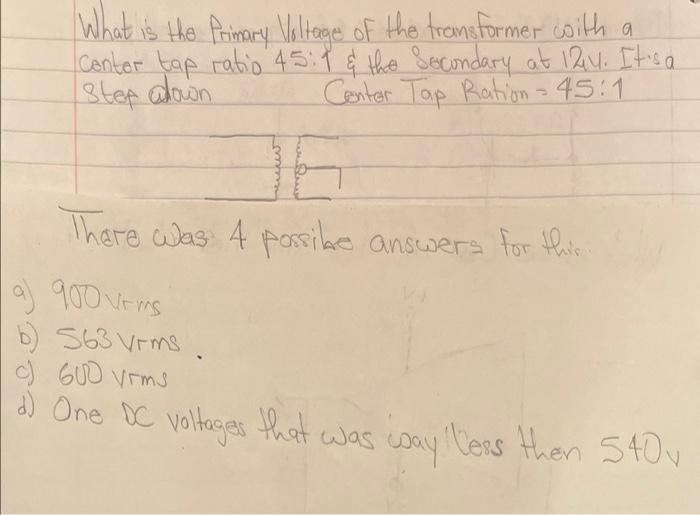 What is the Primary Voltage of the transformer with a
Center tap ratio 45:1 & the Secondary at 12v. It's a
Step down Center Tap Ration = 45:1
There was 4 possibe answers for this.
a) 900 Vrms
b) 563 Vrms.
c) 600 Vrms
d) One DC voltages that was way less then 540v